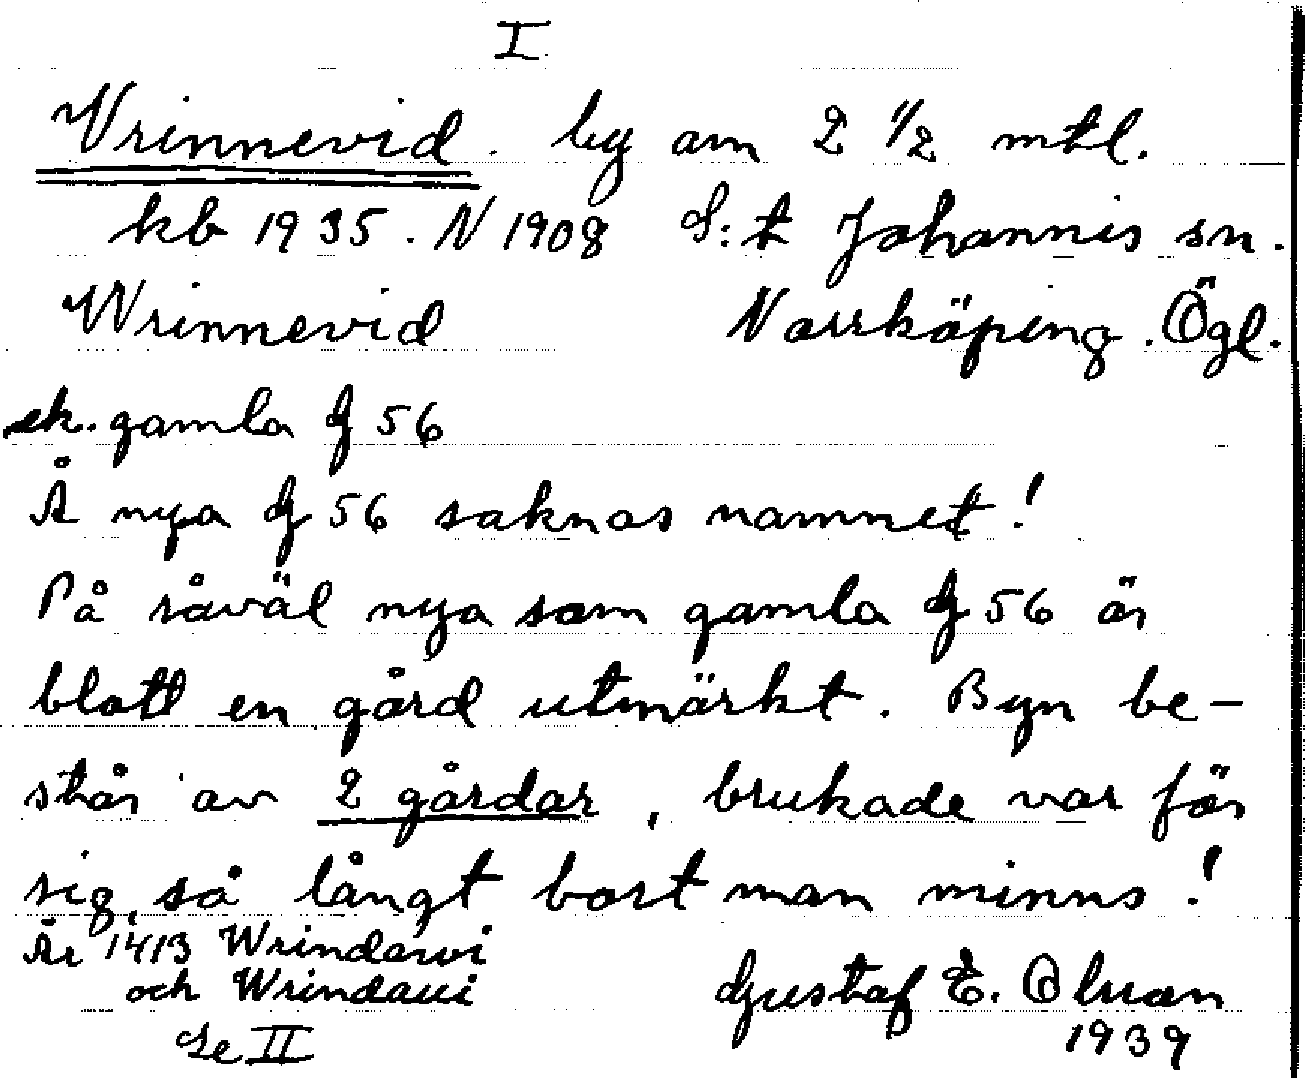 I
Vrinnevid. by om 2 1/2 mtl.
kb 1935. N 1908 S:t Johannis sn.
Wrinnevid Norrköping. Ögl.
ek. gamla G 56
Å nya G 56 saknas namnet!
På såväl nya som gamla G 56 är
blott en gård utmärkt. Byn be-
står av 2 gårdar, brukade var för
sig, så långt bort man minns!
År 1413 Wrindawi
och Wrindaui
Se II
Gustaf E. Olson
1939